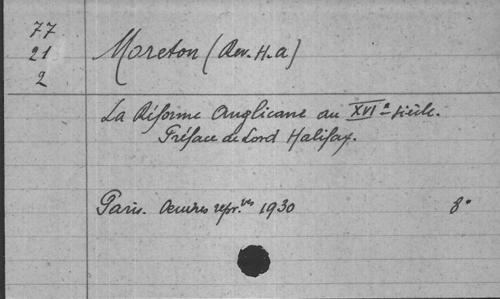 77
21
2
Moreton (Rev. H. A)
La Réforme Anglicane au XVIe siècle.
Préface de Lord Halifax.
Paris. Oeuvres repr.ves 1930 8°